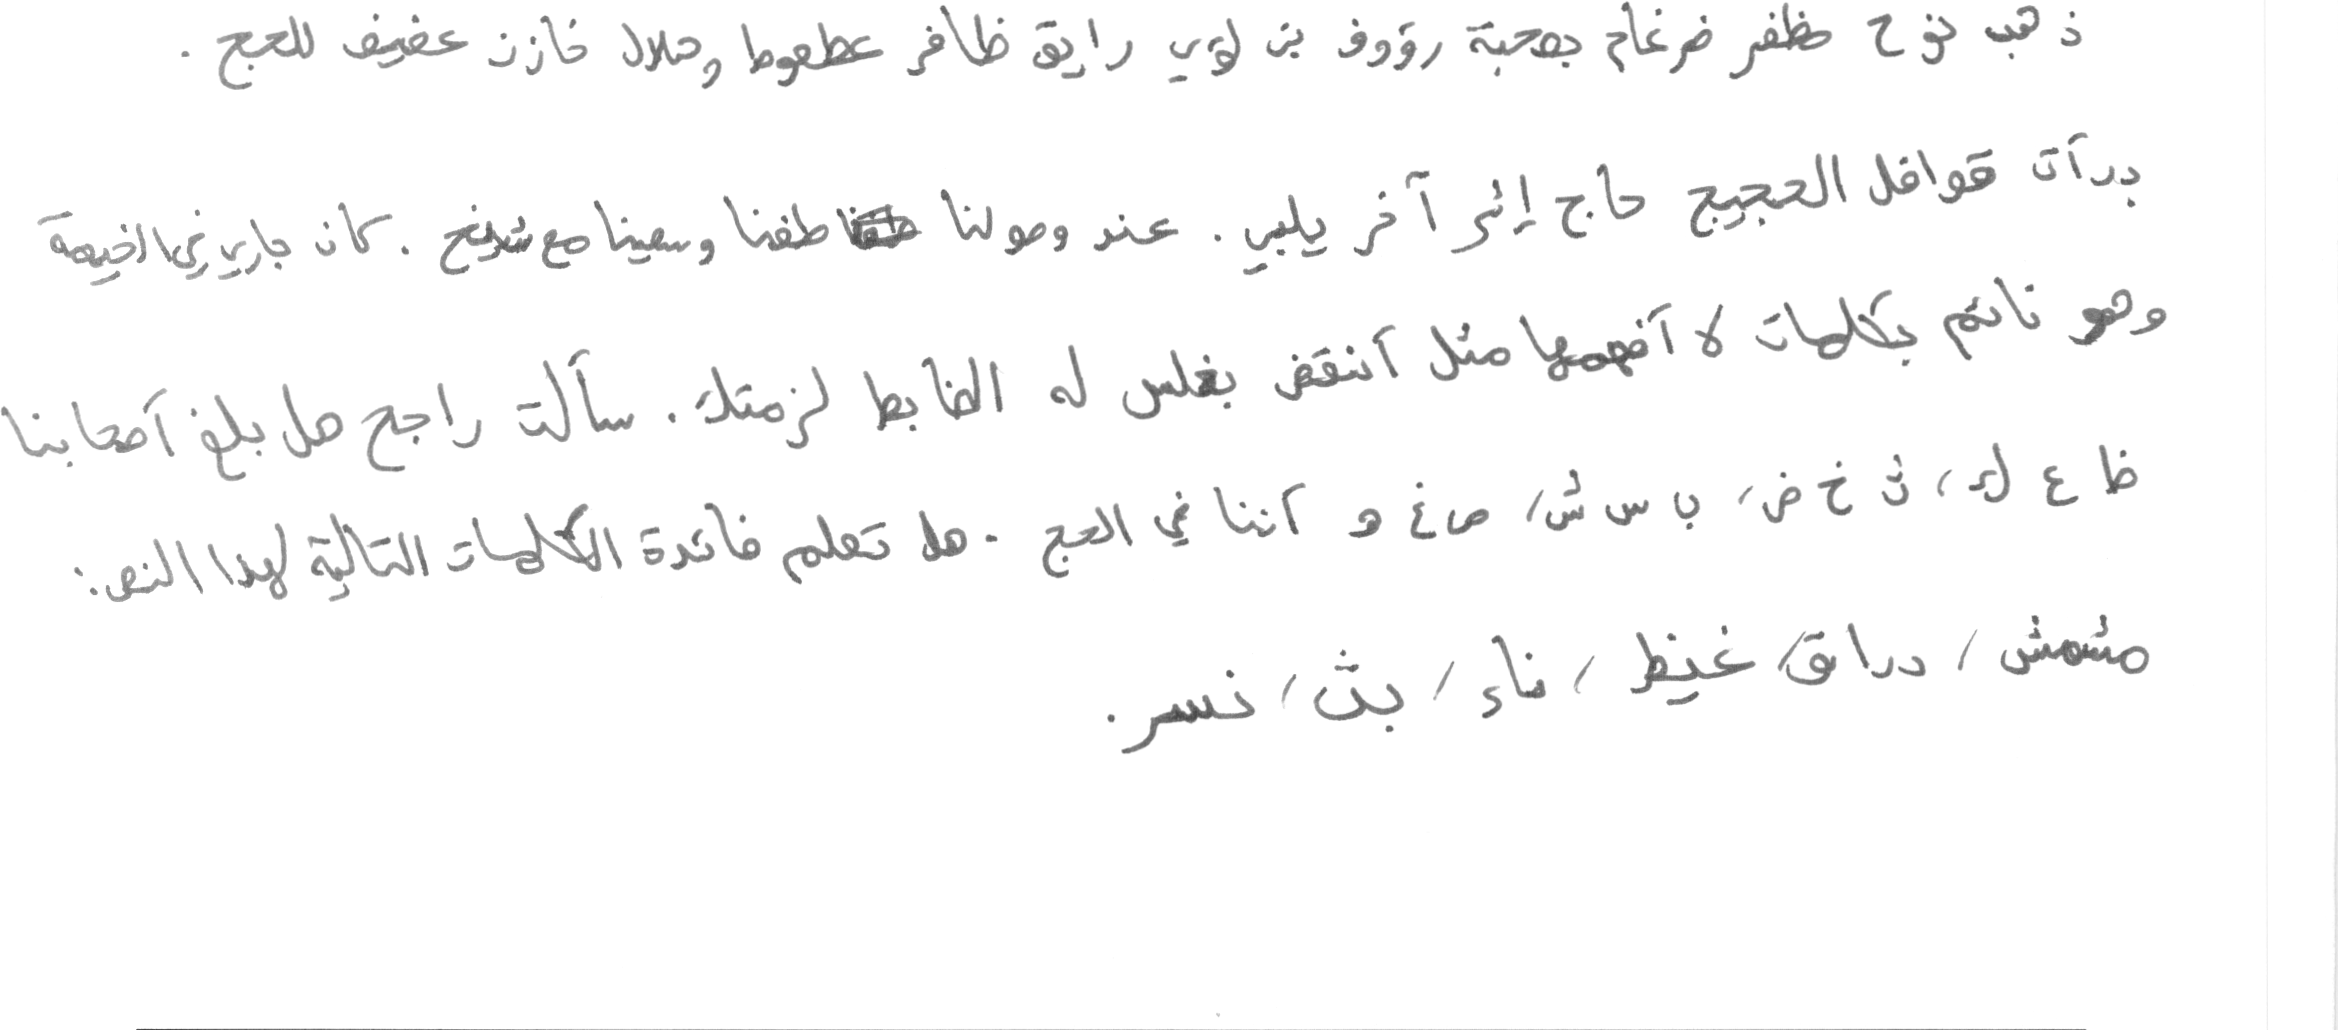 ذهب نوح مظفر ضرغام بصحبة رؤوف بن لؤي رايق ظافر عطعوط وهلال خازن عفيف للحج .
بدأت قوافل الحجيج حاج إثر آخر يلبي . عند وصولنا طفنا وسعينا مع شيخ . كان جاري في الخيمة
وهو نائم بكلمات لا أفهمها مثل أنقض بغلس له الضابط لزمتك . سألت راجح هل بلغ أصحابنا
ظ ع ك ، ث خ ض ، ب س ش ، ص غ و أننا في الحج . هل تعلم فائدة الكلمات التالية لهذا النص :
مشمش ، دراق ، غيظ ، ناء ، بث ، نسر .